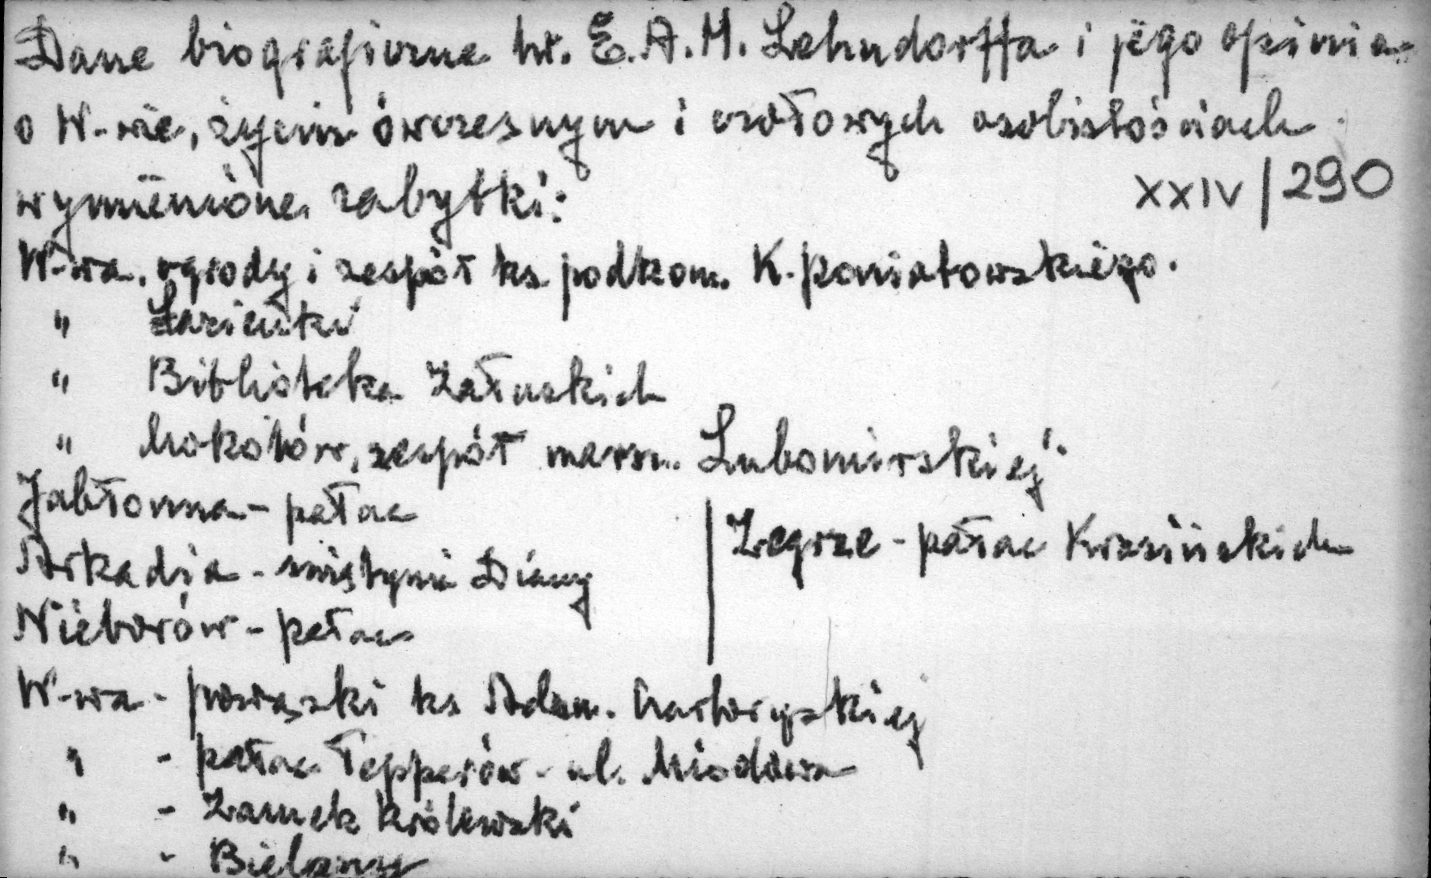 Dane biograficzne hr. E. A. M. Lehndorffa i jego opinia
o W-wie, życiu ówczesnym i czołowych osobistościach.
wymienione zabytki:
XXIV/290
W-wa. ogrody i zespół ks. podkom. K. Poniatowskiego.
" Łazienki
" Biblioteka Załuskich
" Mokotów, zespół marsz. Lubomirskiej
Jabłonna - pałac
Zegrze - pałac Krasińskich
Arkadia - świątynia Diany
Nieborów - pałac
W-wa - Powązki ks. Adam. Czartoryskiej
" - pałac Tepperów - ul. Miodowa
" - Zamek Królewski
" - Bielany